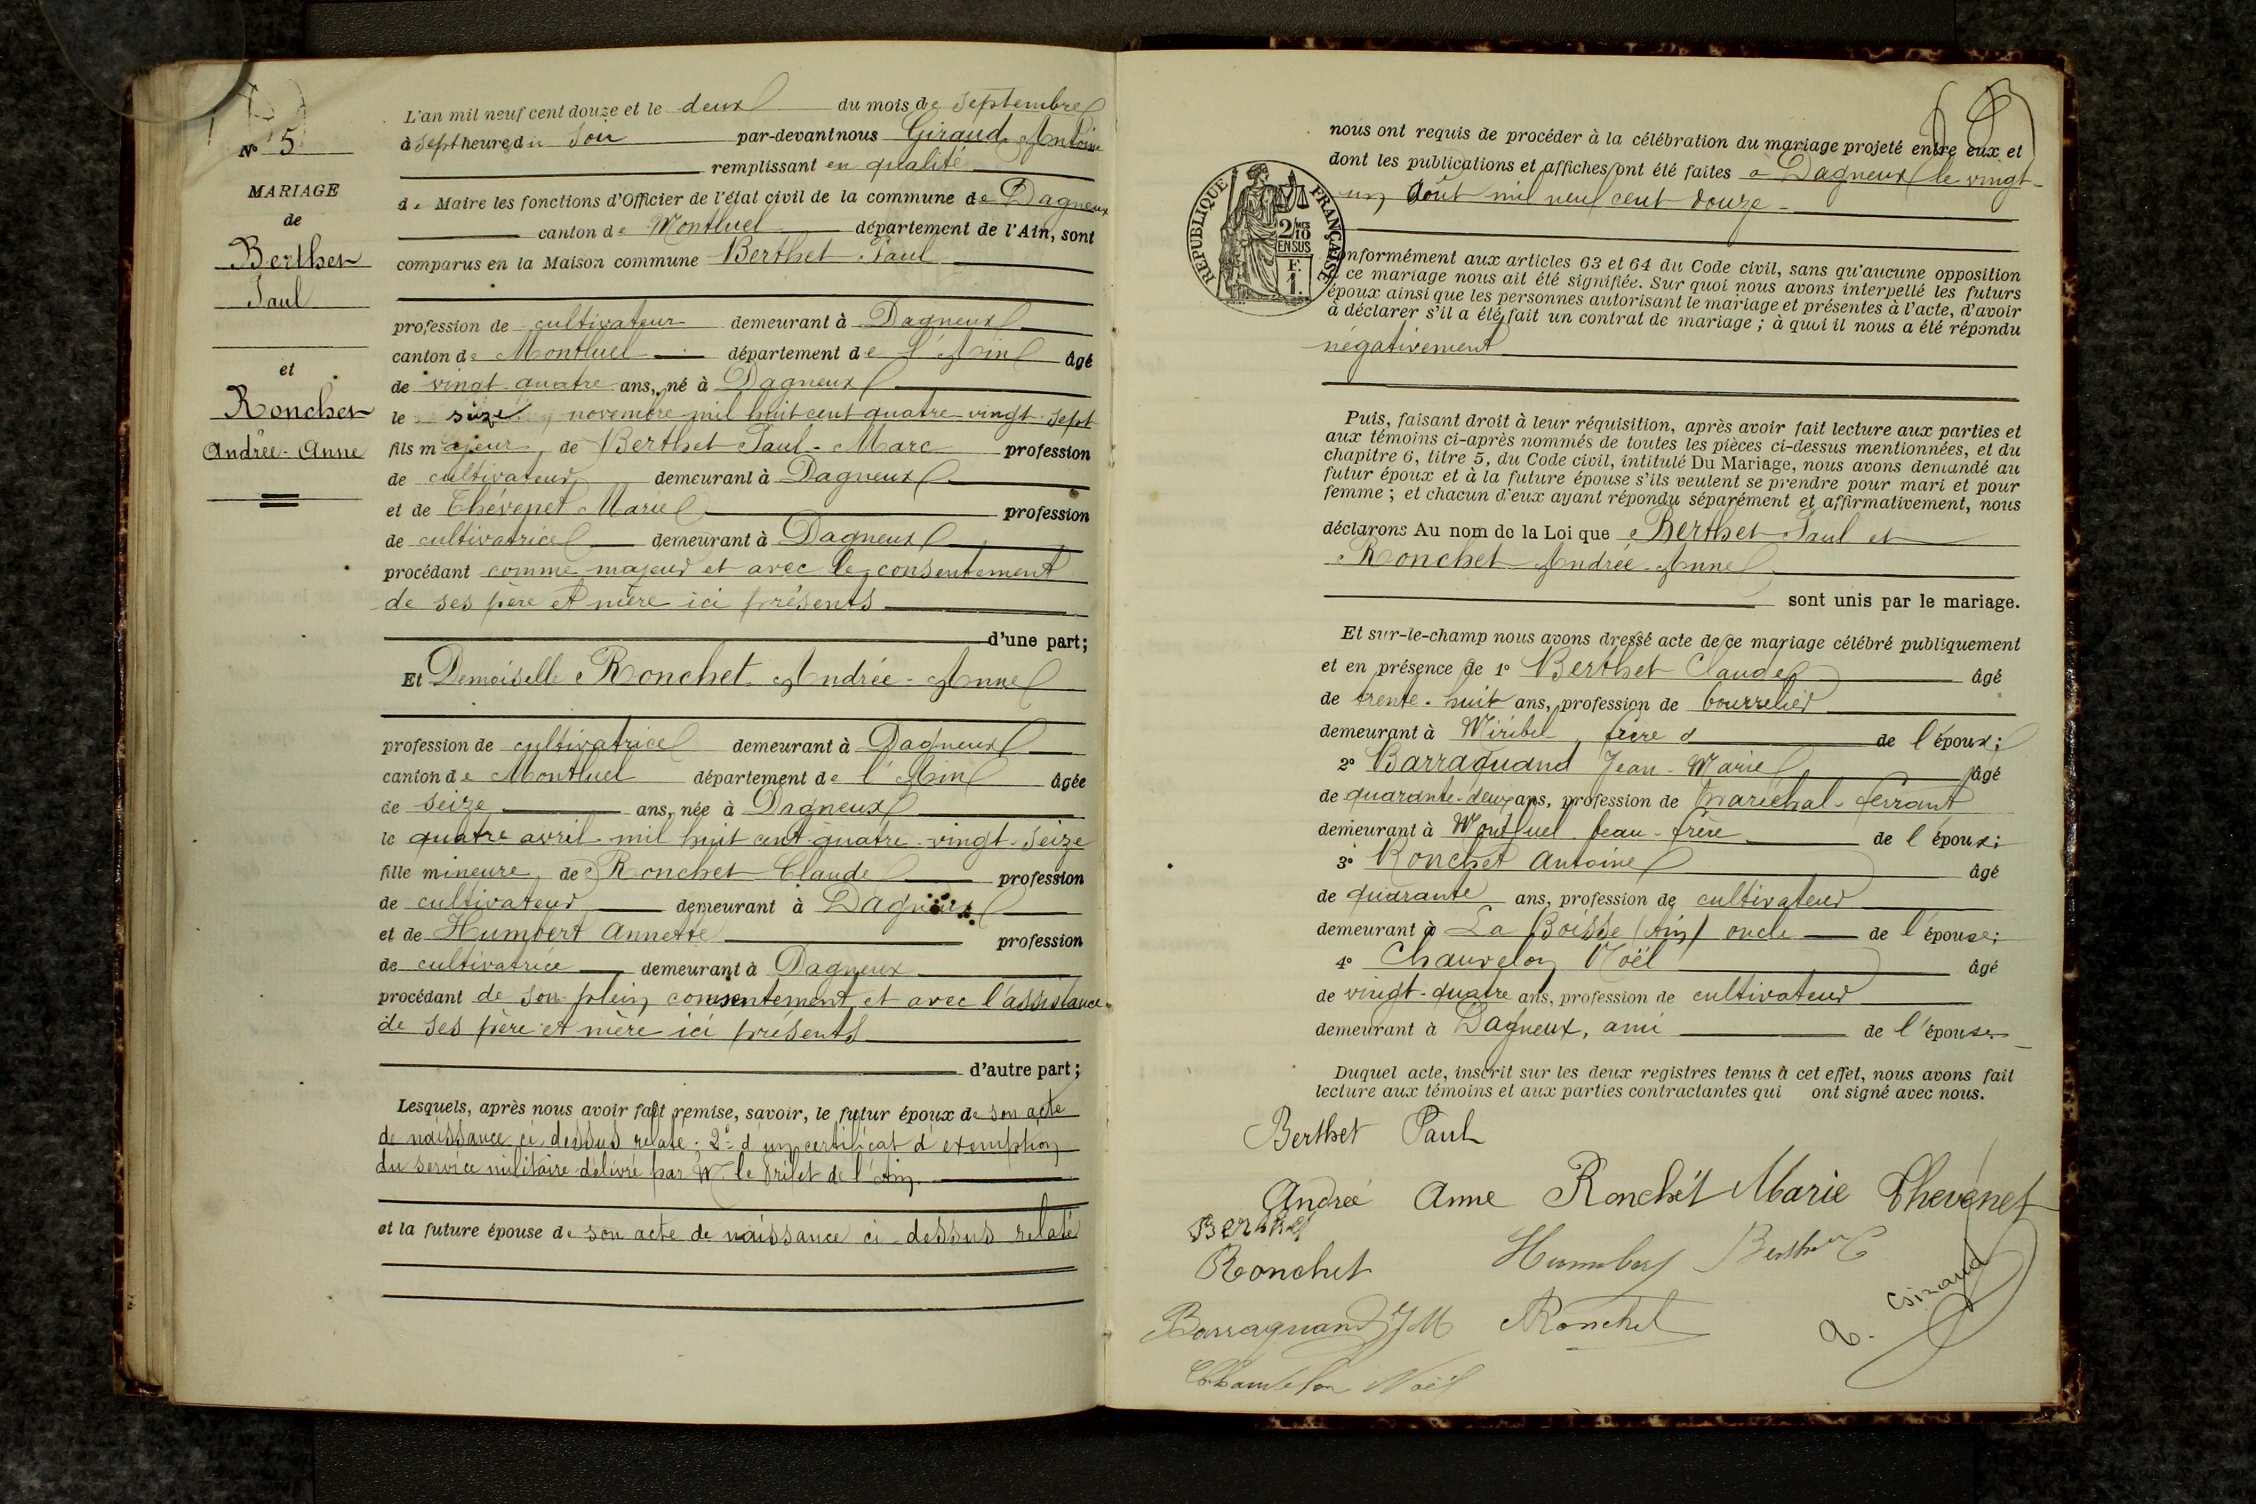 N° 5
MARIAGE
de
Berthet
Paul
et
Ronchet
Andrée-Anne
L'an mil neuf cent douze et le deux du mois de septembre
à sept heure du soir par-devant nous Giraud Antoine
remplissant en qualité
de Maire les fonctions d'Officier de l'état civil de la commune de Dagneux
canton de Montluel département de l'Ain, sont
comparus en la Maison commune Berthet Paul
profession de cultivateur demeurant à Dagneux
canton de Montluel département de l'Ain âgé
de vingt-quatre ans, né à Dagneux
le seize novembre mil huit cent quatre-vingt-sept
fils majeur, de Berthet Paul-Marc profession
de cultivateur demeurant à Dagneux
et de Thévenet Marie profession
de cultivatrice demeurant à Dagneux
procédant comme majeur et avec le consentement
de ses père et mère ici présents
d'une part;
Et Demoiselle Ronchet Andrée-Anne
profession de cultivatrice demeurant à Dagneux
canton de Montluel département de l'Ain âgée
de seize ans, née à Dagneux
le quatre avril mil huit cent quatre-vingt-seize
fille mineure, de Ronchet Claude profession
de cultivateur demeurant à Dagneux
et de Humbert Annette profession
de cultivatrice demeurant à Dagneux
procédant de son plein consentement et avec l'assistance
de ses père et mère ici présents
d'autre part;
Lesquels, après nous avoir fait remise, savoir, le futur époux de son acte
de naissance ci dessus relaté; 2° d'un certificat d'exemption
du service militaire délivré par M. le Préfet de l'Ain.
et la future épouse de son acte de naissance ci-dessus relaté
nous ont requis de procéder à la célébration du mariage projeté entre eux et
dont les publications et affiches ont été faites à Dagneux le vingt-
un Août mil neuf cent douze
RÉPUBLIQUE FRANÇAISE
2/10 EN SUS
F. 1.
conformément aux articles 63 et 64 du Code civil, sans qu'aucune opposition
à ce mariage nous ait été signifiée. Sur quoi nous avons interpellé les futurs
époux ainsi que les personnes autorisant le mariage et présentes à l'acte, d'avoir
à déclarer s'il a été fait un contrat de mariage; à quoi il nous a été répondu
négativement
Puis, faisant droit à leur réquisition, après avoir fait lecture aux parties et
aux témoins ci-après nommés de toutes les pièces ci-dessus mentionnées, et du
chapitre 6, titre 5, du Code civil, intitulé Du Mariage, nous avons demandé au
futur époux et à la future épouse s'ils veulent se prendre pour mari et pour
femme; et chacun d'eux ayant répondu séparément et affirmativement, nous
déclarons Au nom de la Loi que Berthet Paul et
Ronchet Andrée-Anne
sont unis par le mariage.
Et sur-le-champ nous avons dressé acte de ce mariage célébré publiquement
et en présence de 1° Berthet Claude âgé
de trente-huit ans, profession de bourrelier
demeurant à Miribel, frère de l'époux;
2° Barraquand Jean-Marie âgé
de quarante-deux ans, profession de maréchal-ferrant
demeurant à Montluel beau-frère de l'époux;
3° Ronchet Antoine âgé
de quarante ans, profession de cultivateur
demeurant à La Boisse (Ain) oncle de l'épouse;
4° Chauvelon Noël âgé
de vingt-quatre ans, profession de cultivateur
demeurant à Dagneux, ami de l'épouse
Duquel acte, inscrit sur les deux registres tenus à cet effet, nous avons fait
lecture aux témoins et aux parties contractantes qui ont signé avec nous.
Berthet Paul
Andrée Anne Ronchet Marie Thevenet
Berthet
Ronchet Humbert Berthet
A. Giraud
Barraquand JM Ronchet
Chauvelon Noël